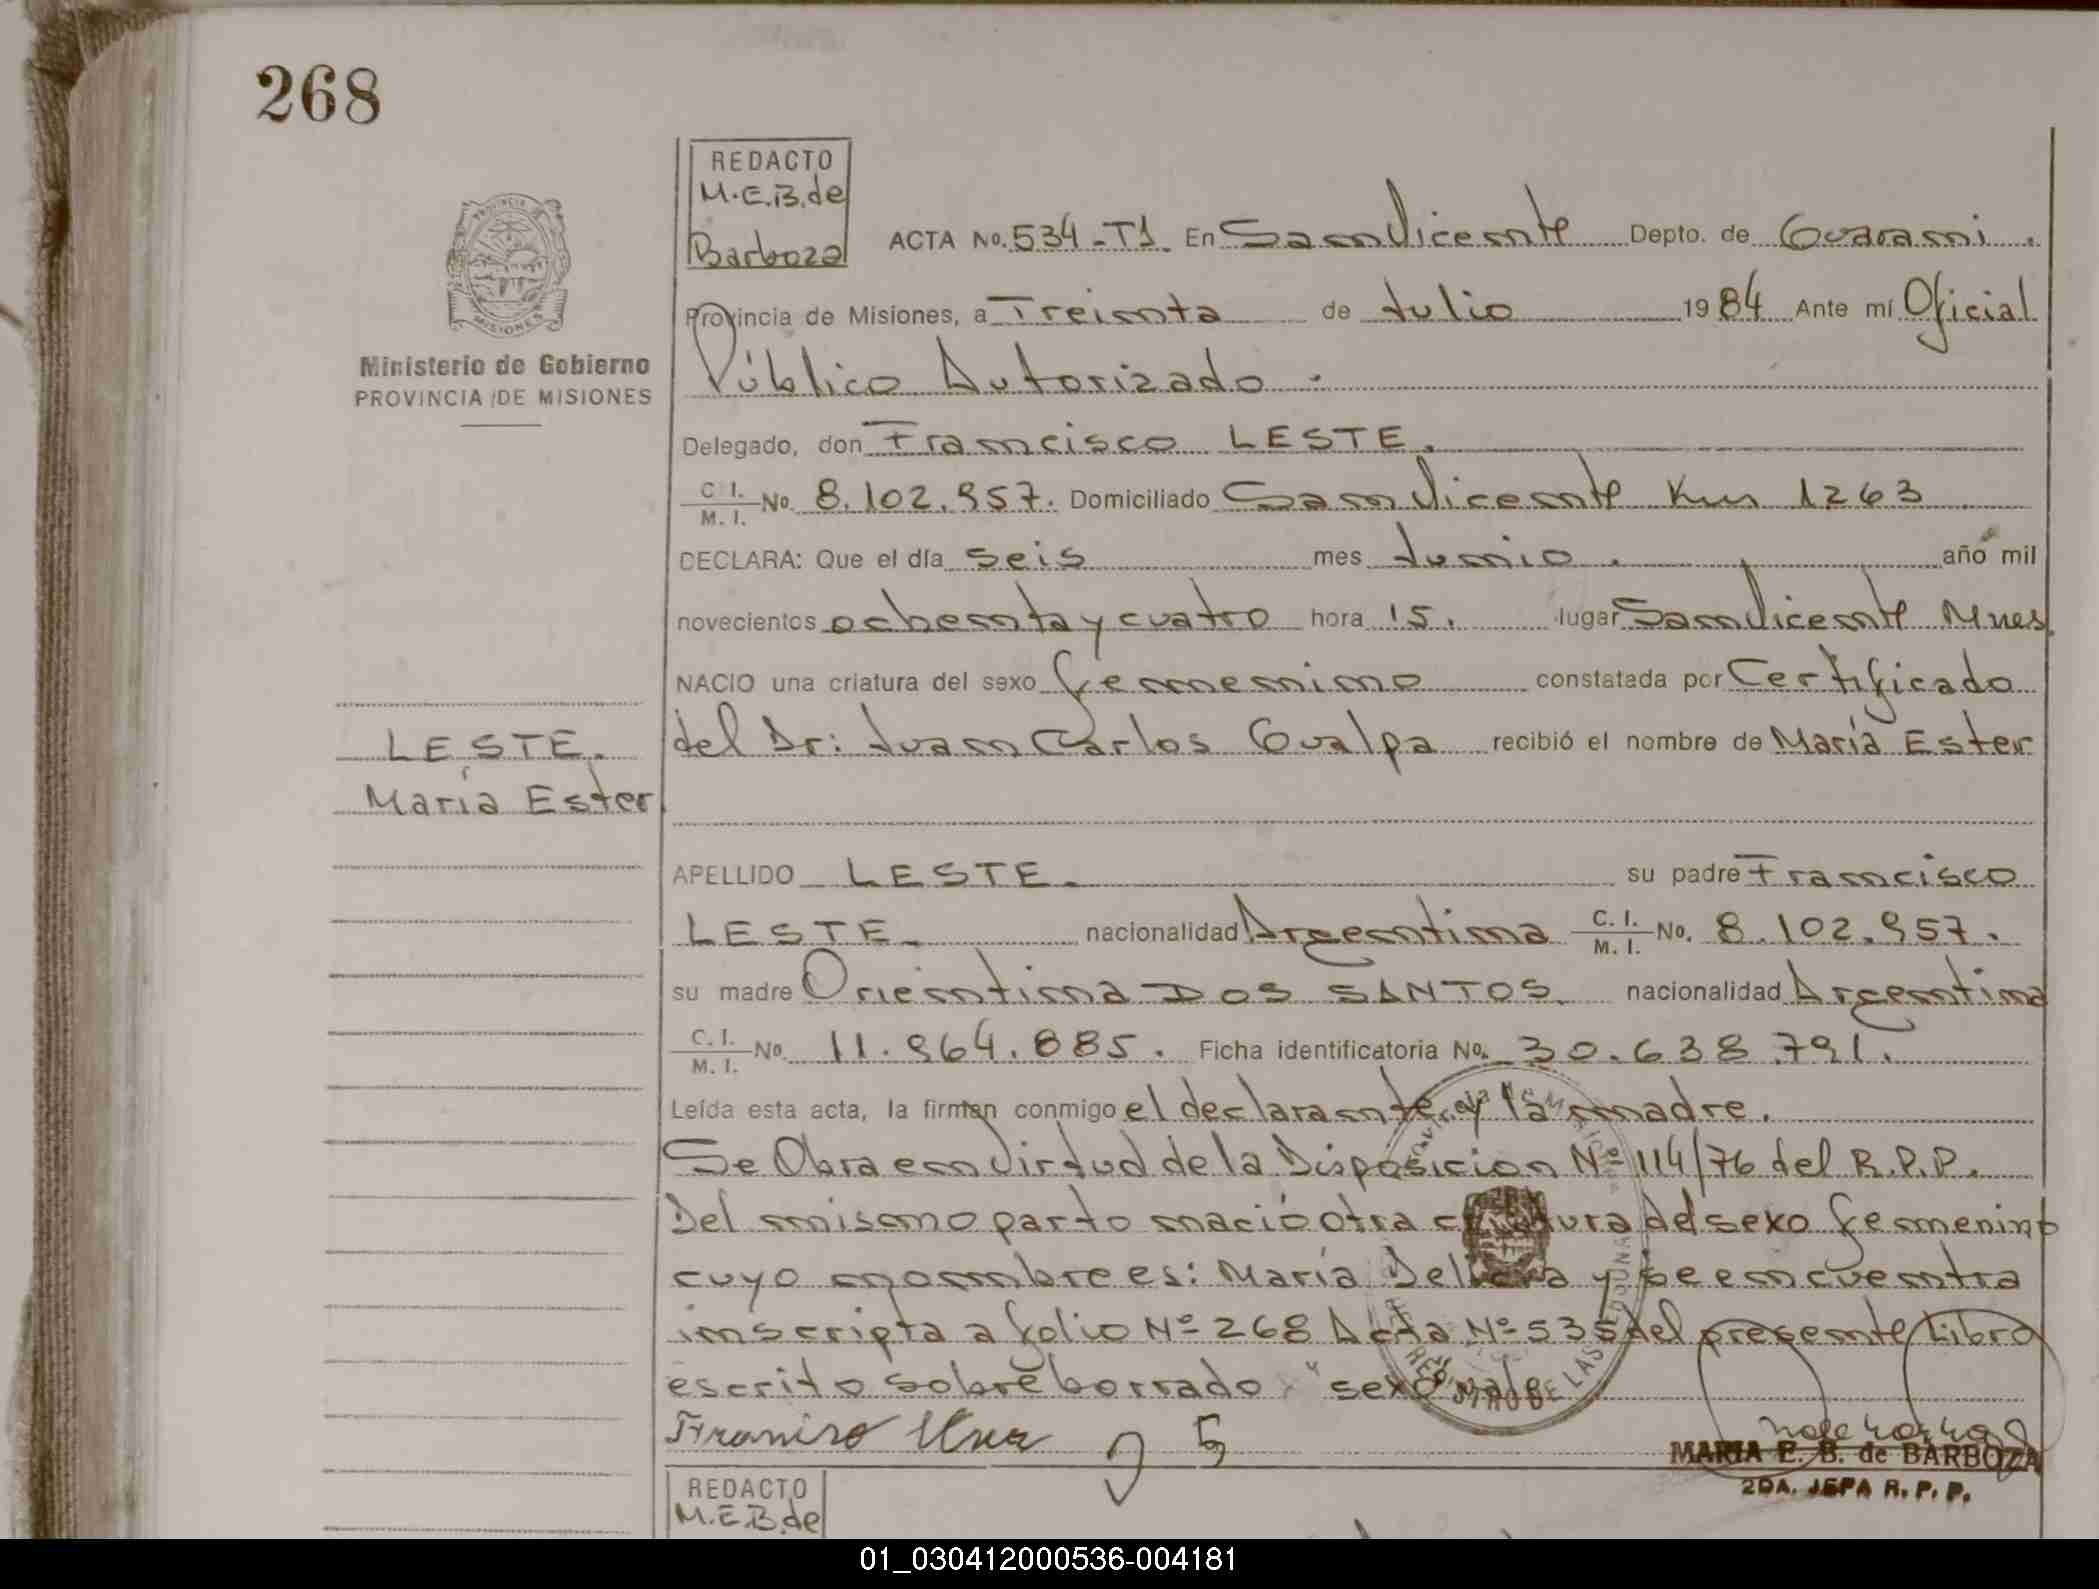 268
REDACTO
M.E.B. de
Barboza
ACTA No. 534-T1. En San Vicente Depto. de Guaraní.
Provincia de Misiones, a Treinta de Julio 1984 Ante mí Oficial
Público Autorizado.
PROVINCIA DE
MISIONES
Ministerio de Gobierno
PROVINCIA DE MISIONES
Delegado, don Francisco LESTE.
C. I. / M. I. No. 8.102.957. Domiciliado San Vicente Km 1263
DECLARA: Que el día seis mes Junio. año mil
novecientos ochenta y cuatro hora 15. lugar San Vicente Mnes.
NACIO una criatura del sexo femenino constatada por Certificado
del Dr: Juan Carlos Gualpa recibió el nombre de María Ester
LESTE.
María Ester
APELLIDO LESTE. su padre Francisco
LESTE. nacionalidad Argentina C. I. / M. I. No. 8.102.957.
su madre Orientina DOS SANTOS. nacionalidad Argentina
C. I. / M. I. No. 11.964.885. Ficha identificatoria No. 30.638.791.
Leída esta acta, la firman conmigo el declarante y la madre.
Se Obra en Virtud de la Disposicion Nº 114/76 del R.P.P.
Del mismo parto nació otra criatura del sexo femenino
cuyo nombre es: María y se encuentra
inscripta a folio Nº 268 Acta Nº 535 del presente Libro
escrito sobre borrado "sexo" vale
MARIA E. B. de BARBOZA
2DA. JEFA R. P. P.
REDACTO
M.E.B. de
01_030412000536-004181